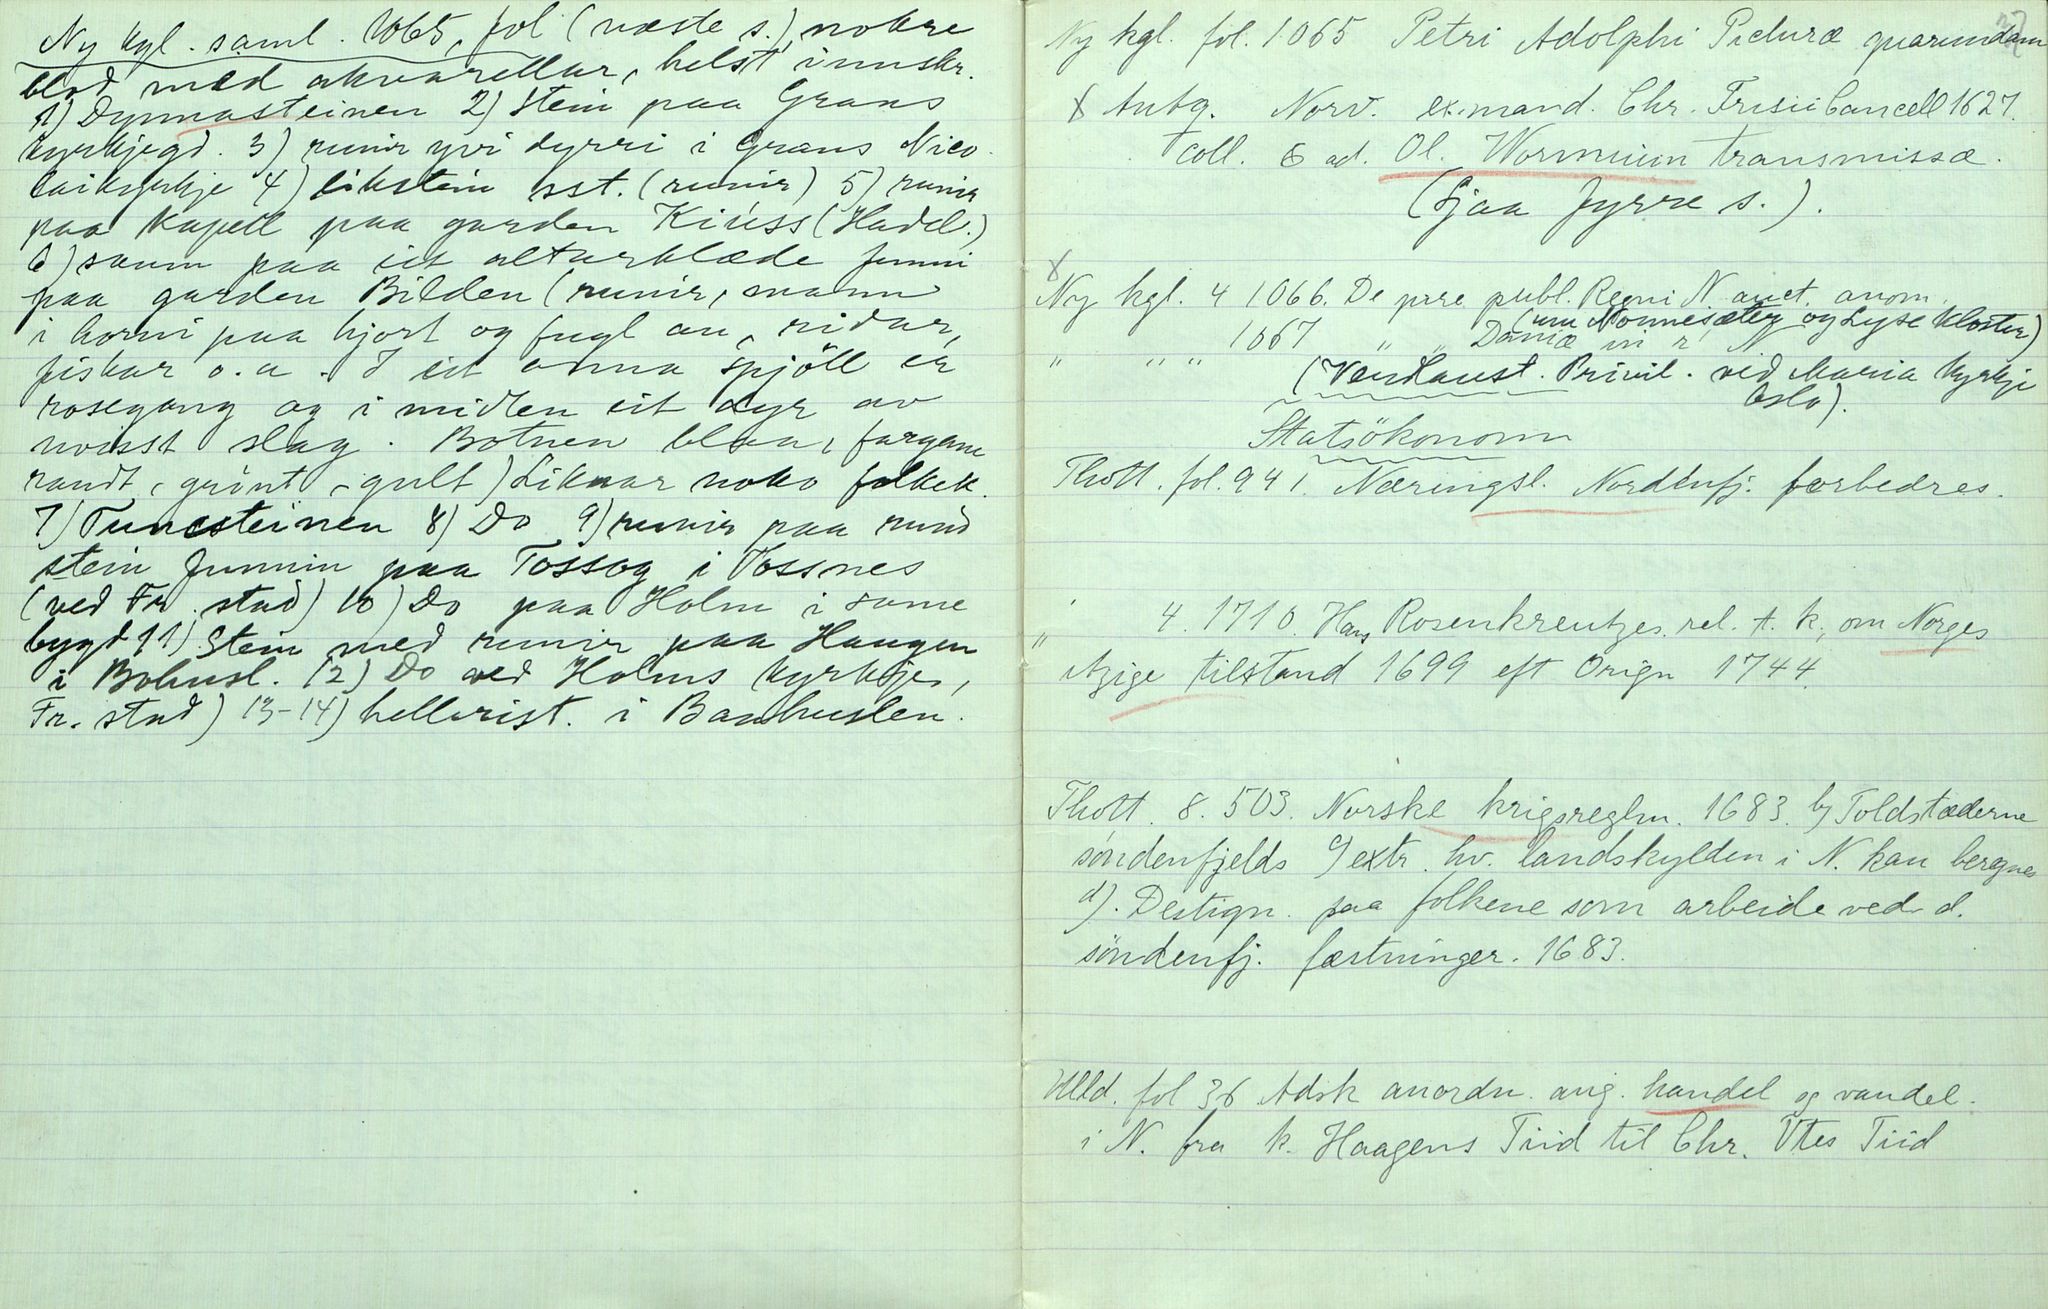 Ny kgl. saml. 1065, fol (næste s.) nokre
blad med akvarellar, helst innskr.
1) Dynnasteinen 2) Stein paa Grans
kyrkjegd. 3) runir yvi dyrri i Grans Nico-
laikyrkje 4) likstein sst. (runir) 5) runir
paa Kapell paa garden Kiúss (Hadel.)
6) saum paa eit altarklæde funni
paa garden Bilden (runir, mann
i horni paa hjort og fugl an, ridar,
fiskar o.a. I eit anna spjöll er
rosegang og i midten eit dyr av
uvisst slag. Botnen blaa, fargane
raudt, grönt, gult) Liknar noko folkek.
7) Tunesteinen 8) Do 9) runir paa rund
stein funnin paa Tossog i Vossnes
(ved Fr. stad) 10) Do paa Holm i same
bygd 11) Stein med runir paa Haugen
i Bohusl. 12) Do ved Holms kyrkje,
Fr. stad) 13-14) hellerist. i Baahuslen.
Ny kgl. fol. 1065 Petri Adolphi Picturæ quarundam
x Antq. Norv. ex mand. Chr. Frisii Cancell 1627.
coll. & ad. Ol. Wormium transmissæ.
(Sjaa fyrre s.).
x
Ny kgl. 4 1066. De prre publ. Regni N. auct. anom.
(um Nonnesæter og Lyse Kloster)
" " " 1067 " " Daniæ in r N
(Vendaust. Privil. ved Maria kyrkje
Oslo).
Statsökonomi
Thott. fol. 941. Næringsl. Nordenfj. forbedres.
" 4. 1710. Hans Rosenkreutzes rel. t. k., om Norges
itzige tilstand 1699 eft Orign 1744.
Thott. 8. 503. Norske krigsreglm. 1683. b) Toldstæderne
søndenfjelds c) extr. hv. landskylden i N. kan beregnes
d). Destign. paa folkene som arbeide ved d.
søndenfj. fæstninger. 1683.
Ulld. fol 36 Adsk anordn. ang. handel og vandel.
i N. fra k. Haagens Tiid til Chr. Vtes Tiid